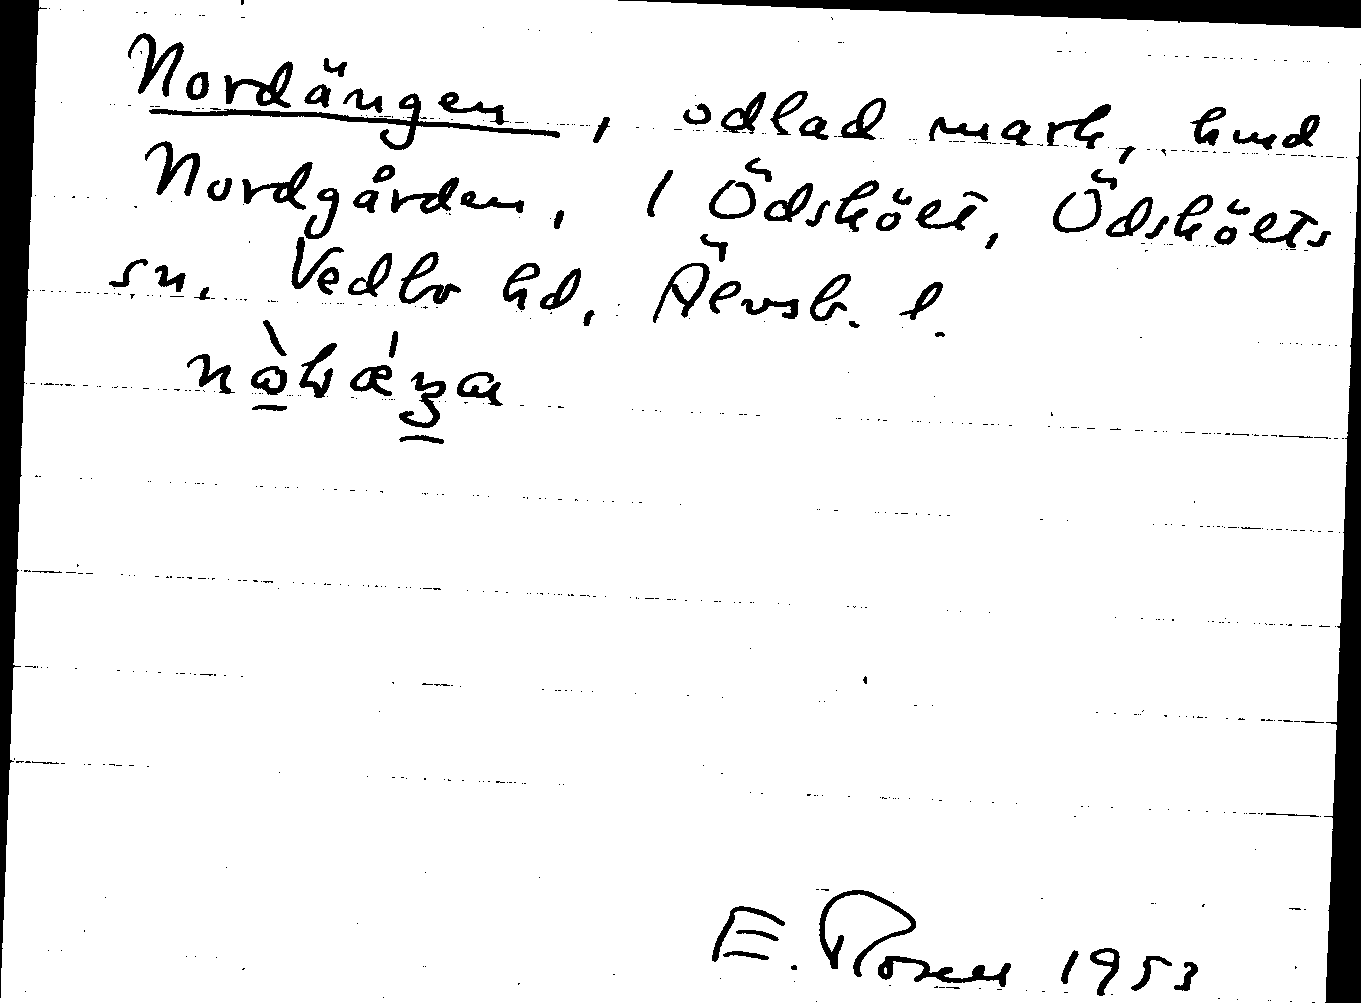 Nordängen, odlad mark, hmd
Nordgården, 1 Ödskölt, Ödskölts
sn. Vedbo hd, Älvsb. l.
E. Rosen 1953